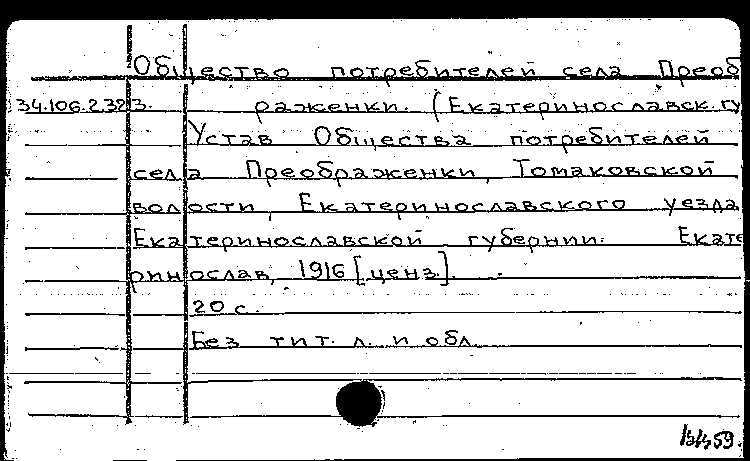 Общество потребителей села Преоб
34.106.2.323. раженки. (Екатеринославск. гу
Устав Общества потребителей
села Преображенки, Томаковской
волости, Екатеринославского уезда
Екатеринославской губернии. Екате
ринослав, 1916 [ценз.].
20 с.
Без тит. л. и обл.